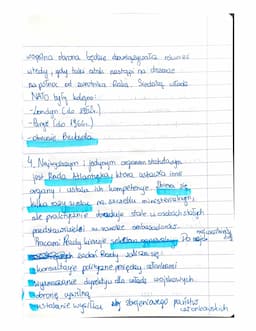 wspólna obrona będzie obowiązywała również
wtedy, gdy taki atak nastąpi na obszarze
na północ od zwrotnika Raka. Siedzibą władz
NATO były kolejno:
-Londyn (do 1952r.)
-Paryż (do 1966r.)
-obecnie Bruksela
4. Najwyższym i jedynym organem statutowym
jest Rada Atlantycka, która ustawia inne
organy i ustala ich kompetencje. Zbiera się
kilka razy w roku na szczeblu ministerialnym,
ale praktycznie obraduje stale w osobach stałych
przedstawicieli w randze ambasadorów.
Pracami Rady kieruje sekretarz generalny. Do najważniejszych
zadań Rady zalicza się:
konsultacje polityczne pomiędzy członkami
wyznaczanie dyrektyw dla władz wojskowych
obronę cywilną
ustalanie wysiłku zbrojeniowego państw
członkowskich